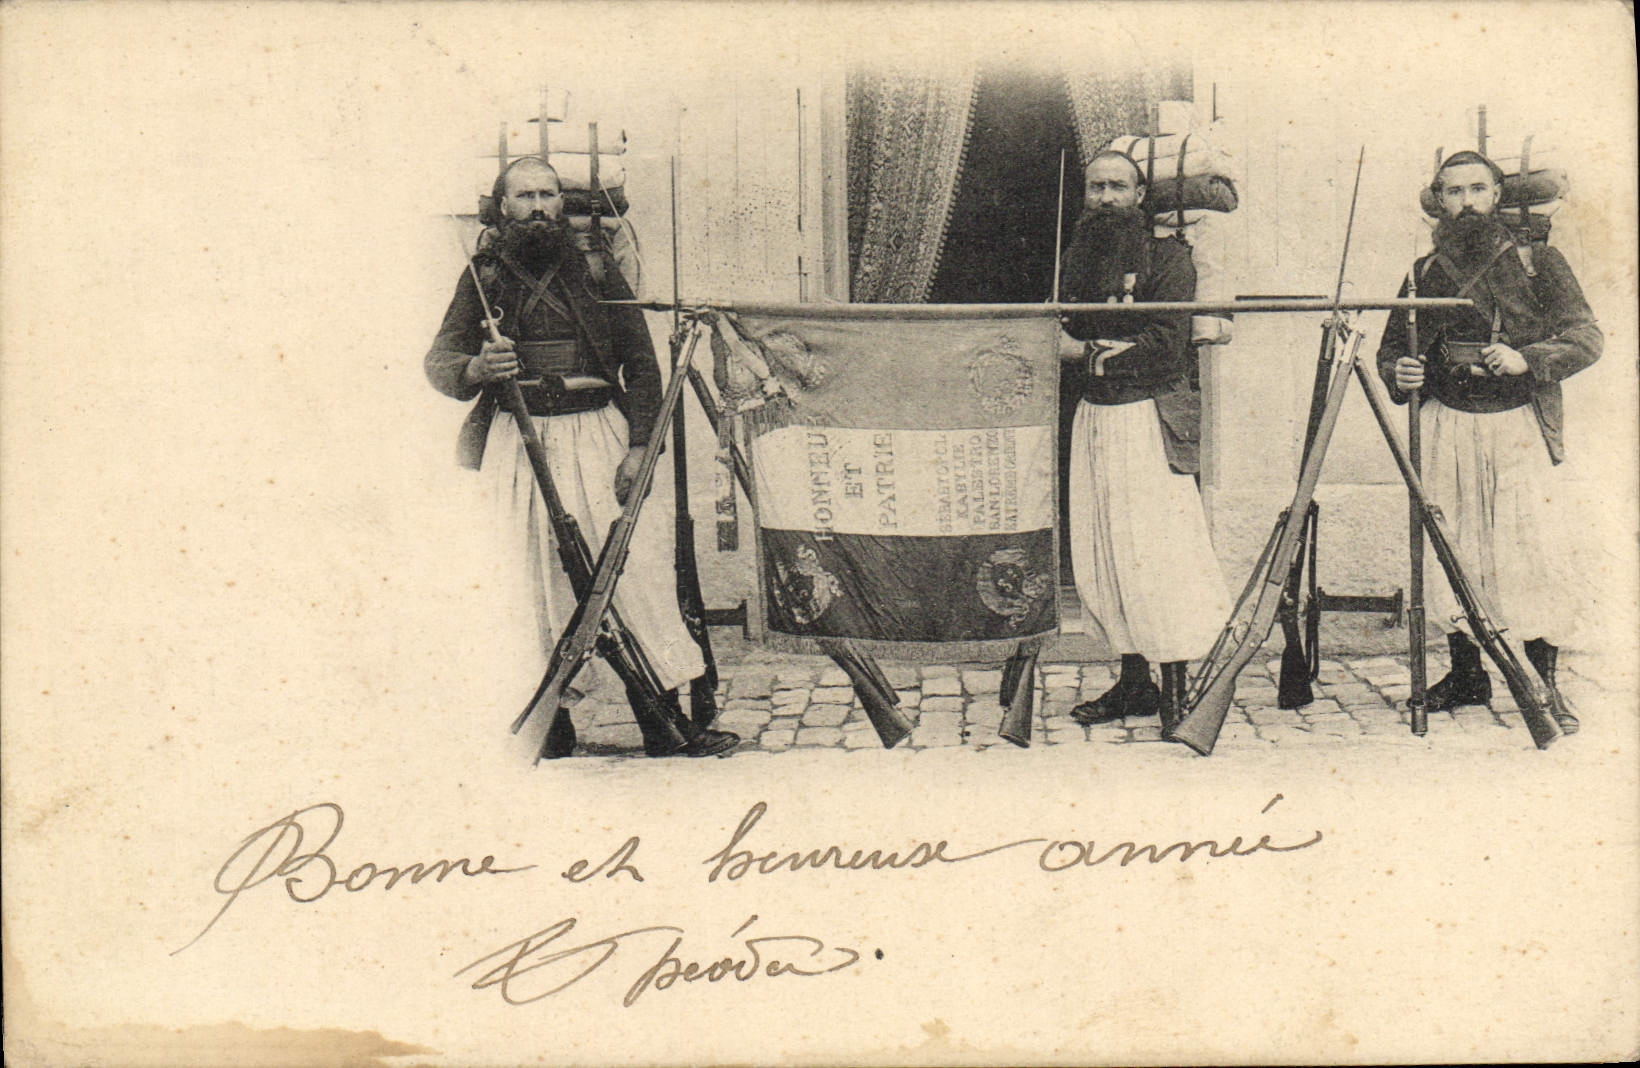 HONNEUR
ET
PATRIE
SÉBASTOPOL
KABYLIE
PALESTRO
SAN LORENZO
EXTRÊME ORIENT
Bonne et heureuse année